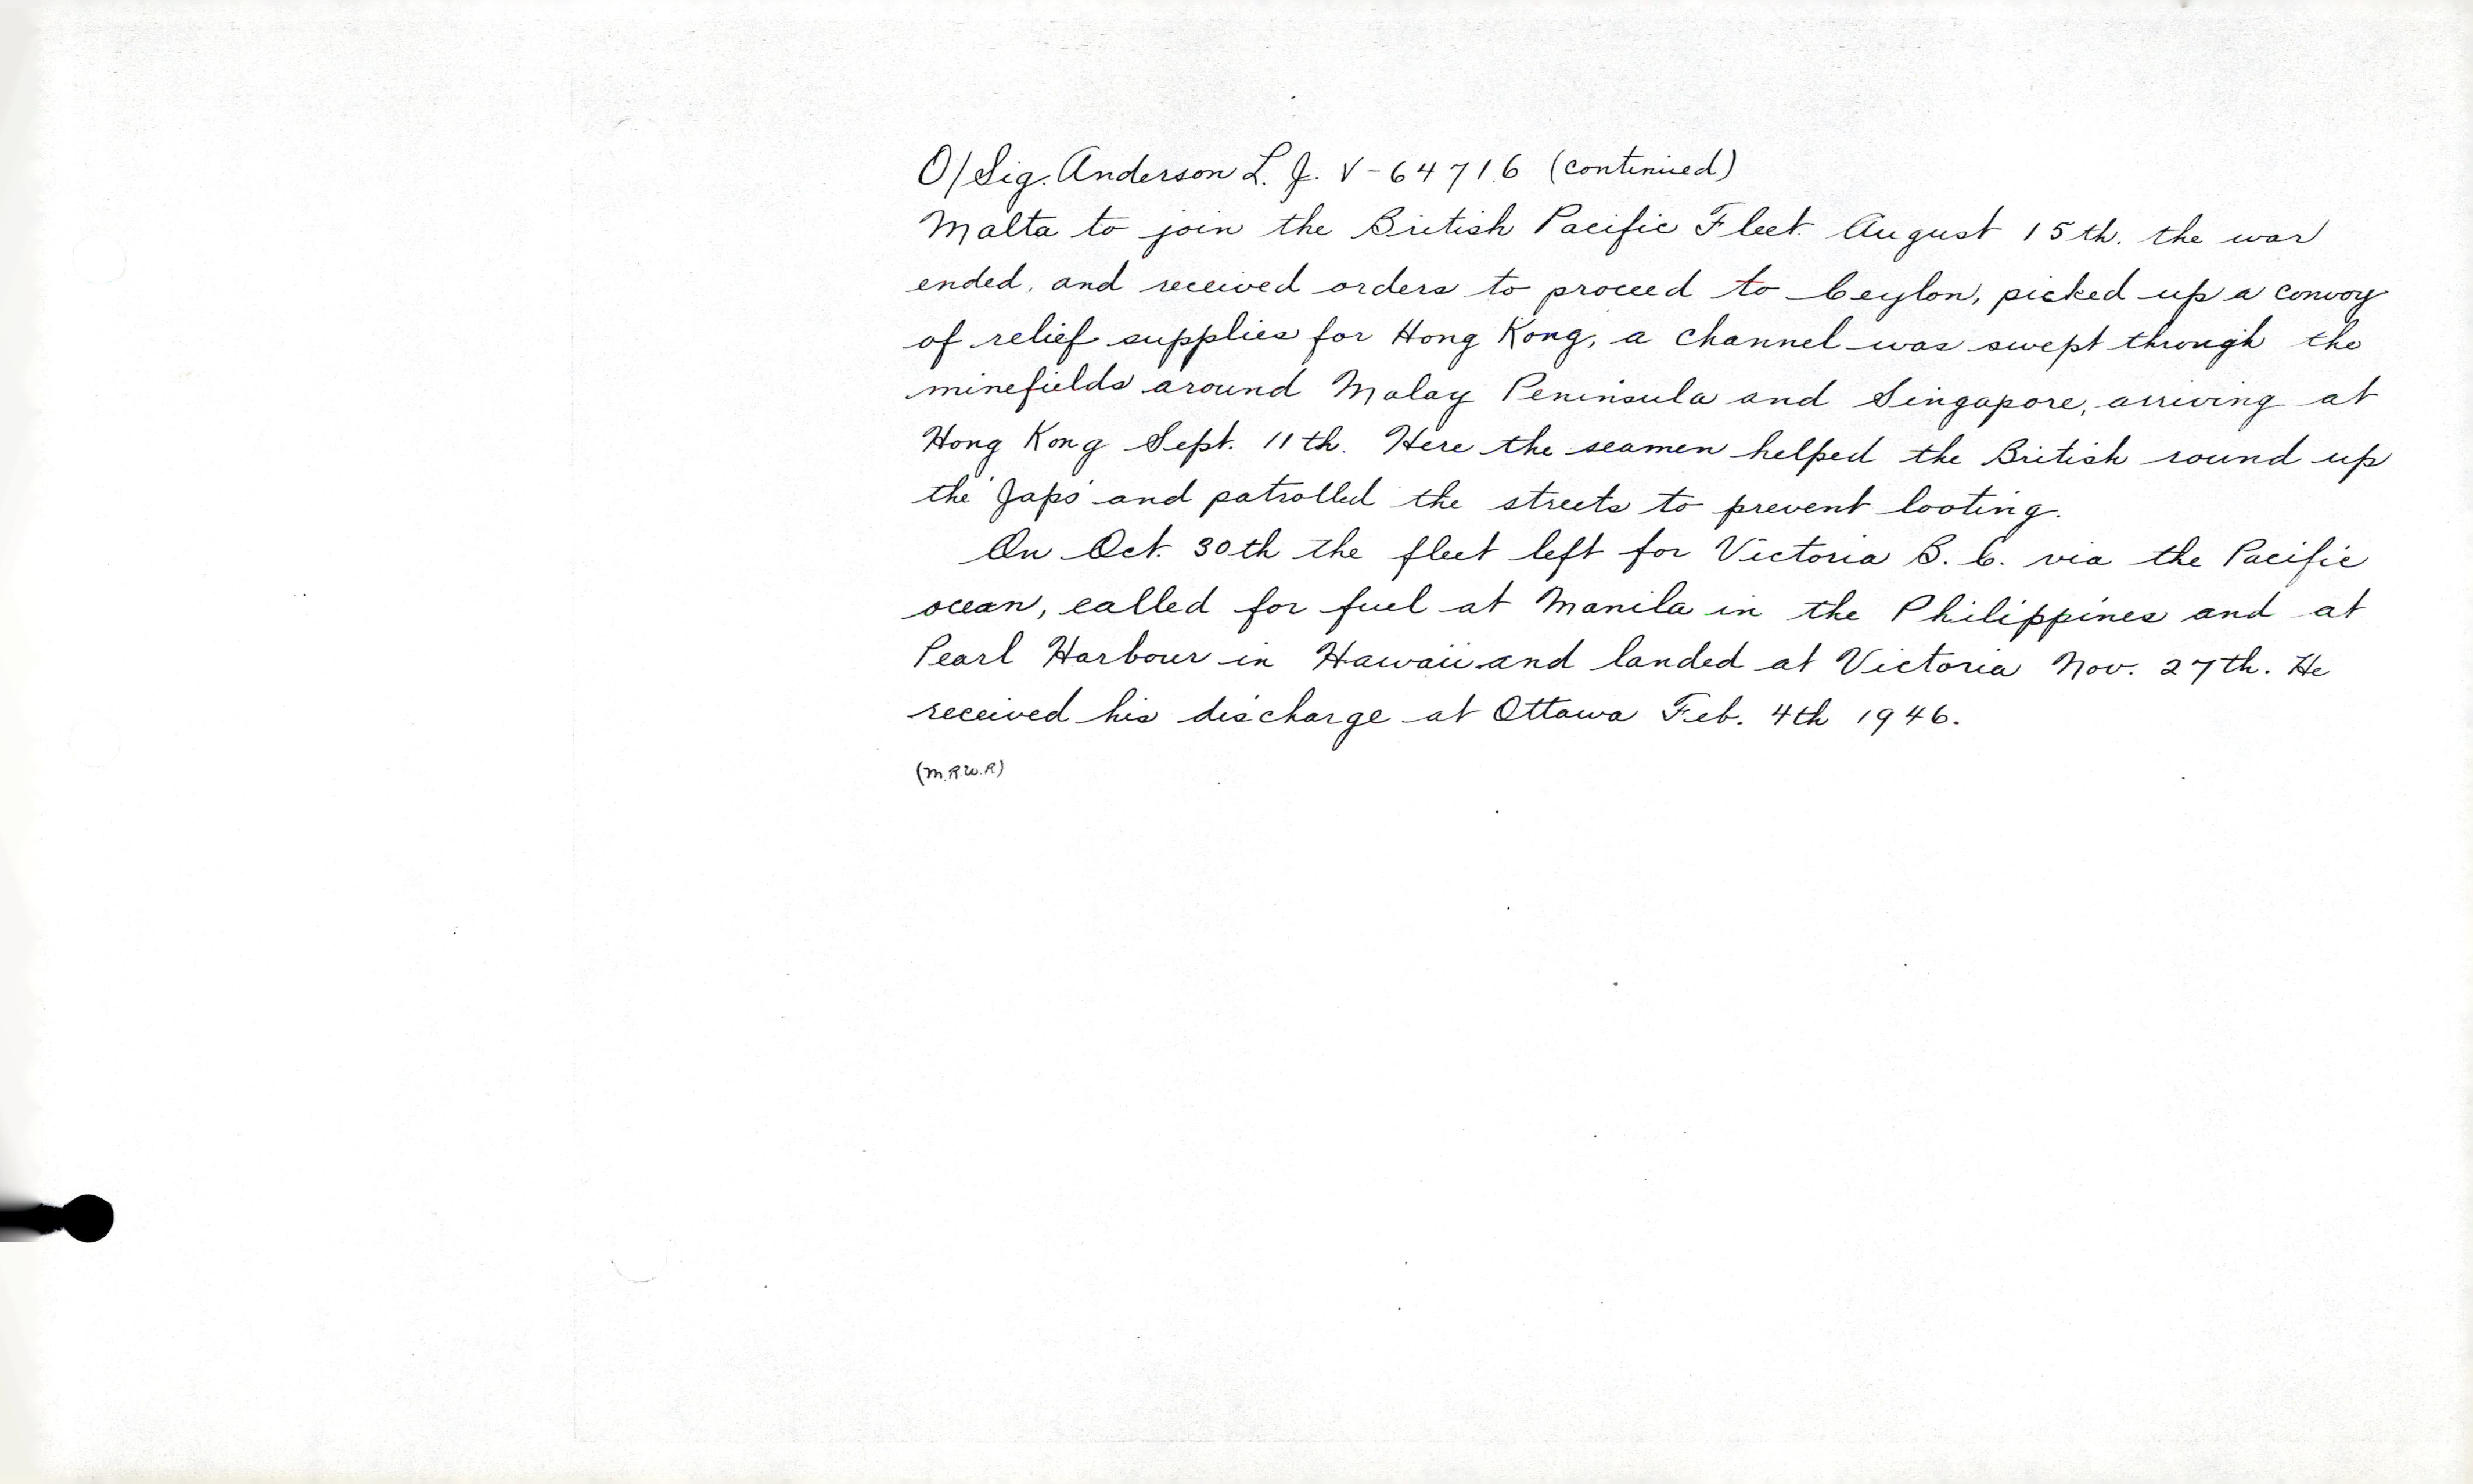 O/Sig. Anderson L. J. V-64716 (continued)
Malta to join the British Pacific Fleet. August 15th. the war
ended, and received orders to proceed to Ceylon, picked up a convoy
of relief supplies for Hong Kong, a channel was swept through the
minefields around Malay Peninsula and Singapore, arriving at
Hong Kong Sept. 11th. Here the seamen helped the British round up
the 'Japs' and patrolled the streets to prevent looting.
On Oct. 30th the fleet left for Victoria B.C. via the Pacific
ocean, called for fuel at Manila in the Philippines and at
Pearl Harbour in Hawaii and landed at Victoria Nov. 27th. He
received his discharge at Ottawa Feb. 4th 1946.
(M.R.W.R)